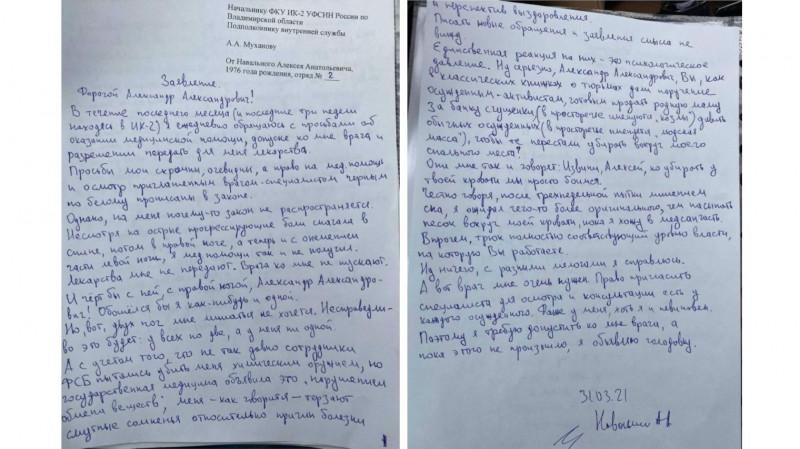 Начальнику ФКУ ИК-2 УФСИН России по
Владимирской области
Подполковнику внутренней службы
А.А. Муханову
От Навального Алексея Анатольевича,
1976 года рождения, отряд № 2
Заявление.
Дорогой Александр Александрович!
В течение последнего месяца (и последние три недели
находясь в ИК-2) я ежедневно обращаюсь с просьбами об
оказании медицинской помощи, допуске ко мне врача и
разрешении передать для меня лекарства.
Просьбы мои скромны, очевидны, а право на мед. помощь
и осмотр приглашенным врачом-специалистом черным
по белому прописаны в законе.
Однако, на меня почему-то закон не распространяется.
Несмотря на острые прогрессирующие боли сначала в
спине, потом в правой ноге, а теперь и с онемением
части левой ноги, я мед. помощи так и не получил.
Лекарства мне не передают. Врача ко мне не пускают.
И чёрт бы с ней, с правой ногой, Александр Александро-
вич! Обошелся бы я как-нибудь и одной.
Но, вот, двух ног мне лишаться не хочется. Несправедли-
во это будет: у всех по две, а у меня ни одной.
А с учетом того, что не так давно сотрудники
ФСБ пытались убить меня химическим оружием, но
государственная медицина объявила это "нарушением
обмена веществ", меня - как говорится - терзают
смутные сомненья относительно причин болезни
и перспектив выздоровления.
Писать новые обращения и заявления смысла не
вижу.
Единственная реакция на них - это психологическое
давление. Ну серьезно, Александр Александрович, Вы, как
в классических книжках о тюрьмах дали поручение
осужденным-активистам, готовым продать родную маму
за банку сгущенки (в просторечие именуются, "козлы") давить
обычных осужденных (в просторечие именуются "людская
масса"), чтобы те перестали убирать вокруг моего
спального места!
Они мне так и говорят: Извини, Алексей, но убирать у
твоей кровати мы просто боимся.
Честно говоря, после трехнедельной пытки лишением
сна, я ожидал чего-то более оригинального, чем насыпать
песок вокруг моей кровати, пока я хожу в медсанчасть.
Впрочем, трюк полностью соответствующий уровню власти,
на которую Вы работаете.
Ну ничего, с разными мелочами я справлюсь.
А вот врач мне очень нужен. Право пригласить
специалиста для осмотра и консультации есть у
каждого осужденного. Даже у меня, хоть я и невиновен.
Поэтому я требую допустить ко мне врача, а
пока этого не произошло, я объявляю голодовку.
31.03.21
Навальный АА